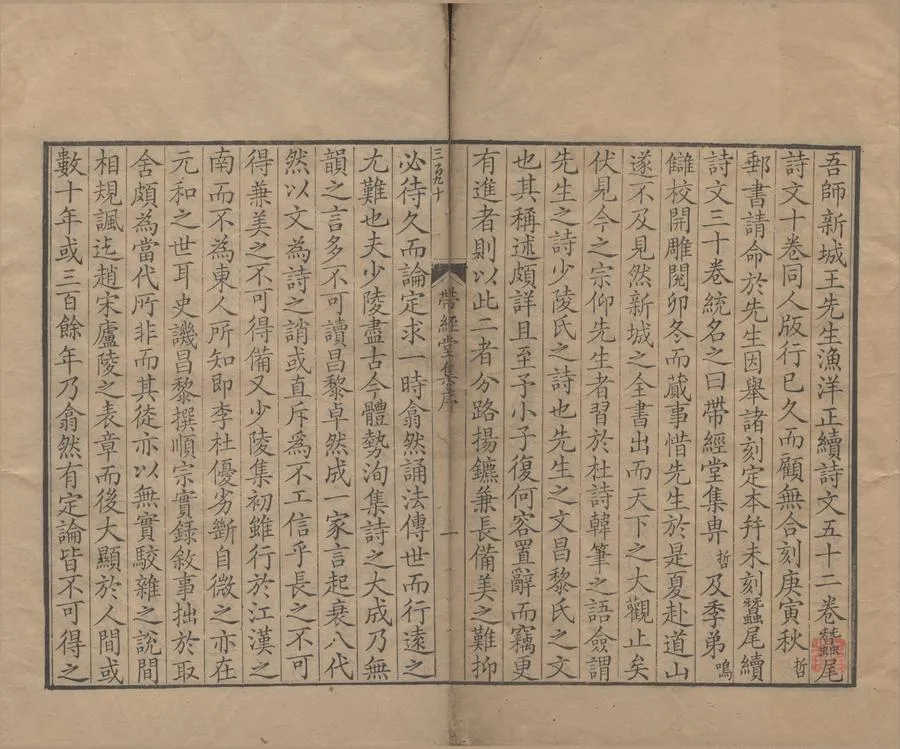 吾師新城王先生漁洋正續詩文五十二卷蠶尾
詩文十卷同人版行已久而顧無合刻庚寅秋哲
郵書請命於先生因舉諸刻定本幷未刻蠶尾續
詩文三十卷統名之曰帶經堂集畀哲及季弟鳴
讎校開雕閱卯冬而蕆事惜先生於是夏赴道山
遂不及見然新城之全書出而天下之大觀止矣
伏見今之宗仰先生者習於杜詩韓筆之語僉謂
先生之詩少陵氏之詩也先生之文昌黎氏之文
也其稱述頗詳且至予小子復何容置辭而竊更
有進者則以此二者分路揚鑣兼長備美之難抑
帶經堂集序
一
三百九十
必待久而論定求一時翕然誦法傳世而行遠之
尢難也夫少陵盡古今體勢洵集詩之大成乃無
韻之言多不可讀昌黎卓然成一家言起衰八代
然以文為詩之誚或直斥為不工信乎長之不可
得兼美之不可得備又少陵集初雖行於江漢之
南而不為東人所知即李杜優劣斷自微之亦在
元和之世耳史譏昌黎撰順宗實錄敘事拙於取
舍頗為當代所非而其徒亦以無實駁雜之說間
相規諷迄趙宋廬陵之表章而後大顯於人間或
數十年或三百餘年乃翕然有定論皆不可得之